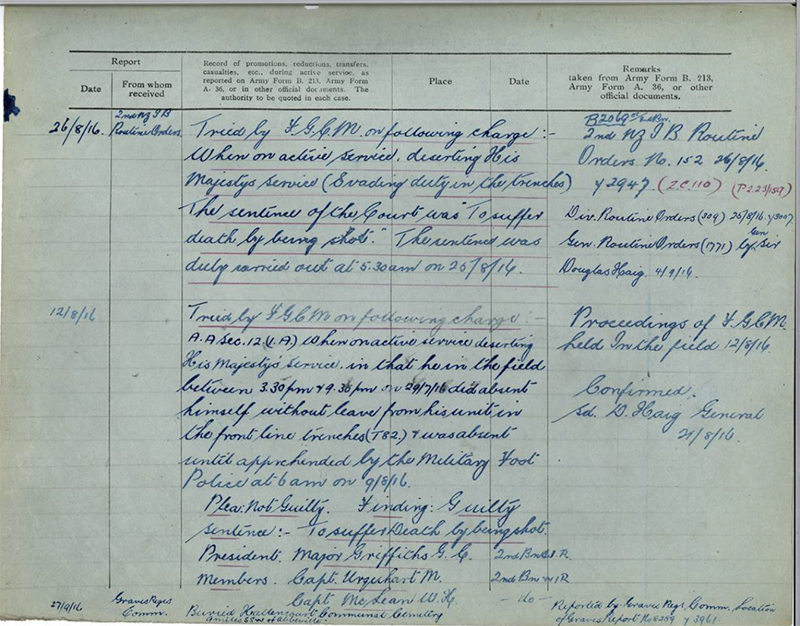 Report
Date
From whom received
Record of promotions, reductions, transfers, casualties, etc., during active service, as reported on Army Form B. 213, Army Form A. 36, or in other official documents. The authority to be quoted in each case.
Place
Date
Remarks
taken from Army Form B. 213, Army Form A. 36, or other official documents.
26/8/16.
2nd NZ I B
Routine Orders
Tried by F.G.C.M. on following charge :-
When on active service, deserting His
Majestys Service (Evading duty in the trenches)
The sentence of the Court was "To suffer
death by being shot." The sentence was
duly carried out at 5.30am on 25/8/16.
B2069
2nd NZ I B Routine
Orders No. 152 26/8/16.
y2947. (Z.C.110)
Div. Routine Orders (309) 25/8/16.
Gen. Routine Orders (1771) by Gen Sir
Douglas Haig. 4/9/16.
12/8/16
Tried by F.G.C.M on following charge :-
A.A Sec. 12.(1.A) When on active service deserting
His Majesty's Service in that he in the field
between 3.30pm & 9.30pm on 29/7/16 did absent
himself without leave from his unit in
the front line trenches (T82.) & was absent
until apprehended by the Military Foot
Police at 6am on 9/8/16.
Plea: Not Guilty. Finding: Guilty
Sentence :- To suffer Death by being shot.
President. Major Griffiths G. C. 2nd Bn
Members. Capt. Urquhart M. 2nd Bn
Capt. McLean W. H. - do -
Proceedings of F.G.C.M.
held In the field 12/8/16.
Confirmed.
Sd. D. Haig General
21/8/16.
27/9/16
Graves Regis
Comm.
Buried Hallencourt Communal Cemetery
Reported by Graves Regs Comm. Location
of Graves Report No 8259 y 3961